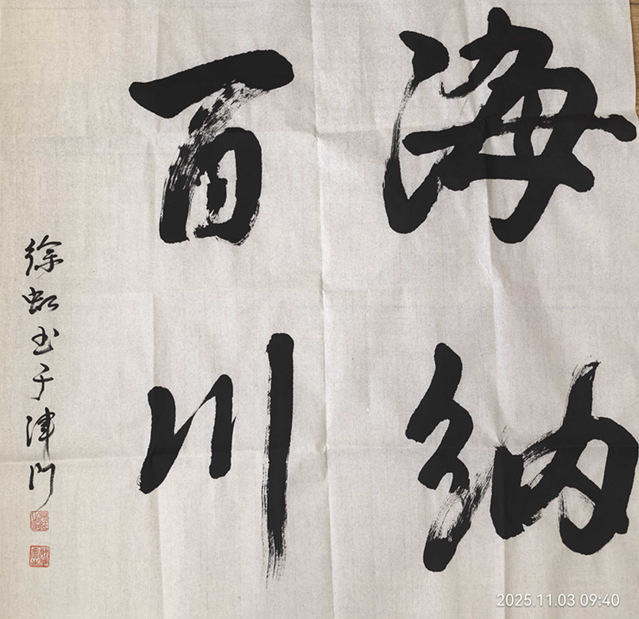 海纳
百川
徐虹书于津门
2025.11.03 09:40